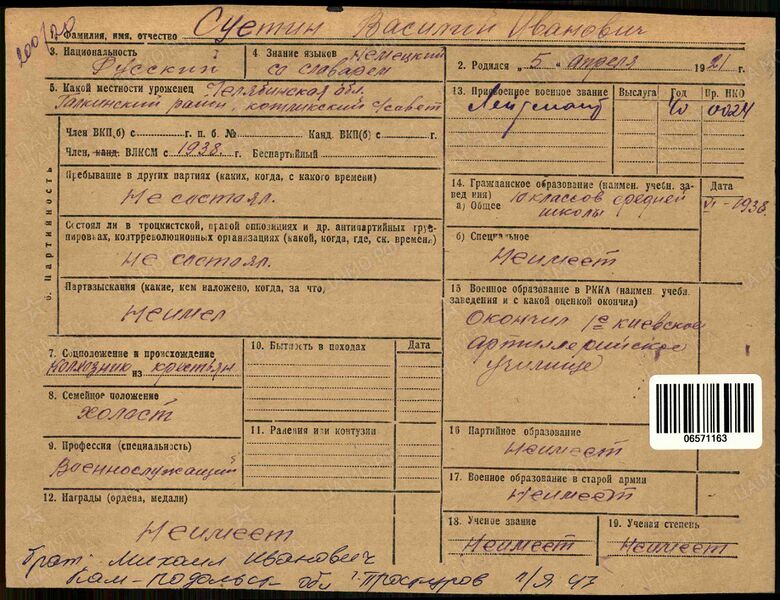 200/20
1. Фамилия, имя, отчество Суетин Василий Иванович
3. Национальность Русский
4. Знание языков Немецкий со словарем
2. Родился „5“ апреля 1921 г.
5. Какой местности уроженец Челябинская обл.
Галкинский район, сельсовет
13. Присвоенное военное звание Выслуга Год Пр. НКО
Лейтенант 40 0024
6. Партийность
Член ВКП(б) с г. п. б. № Канд. ВКП(б) с г.
Член, канд. ВЛКСМ с 1938 г. Беспартийный
Пребывание в других партиях (каких, когда, с какого времени)
Не состоял.
14. Гражданское образование (наимен. учебн. заведения) Дата
а) Общее классов средней школы VI-1938
Состоял ли в троцкистской, правой оппозициях и др. антипартийных группировках, контрреволюционных организациях (какой, когда, где, ск. времени)
Не состоял.
б) Специальное
Неимеет
Партвзыскания (какие, кем наложено, когда, за что,
Неимел
15 Военное образование в РККА (наимен. учебн. заведения и с какой оценкой окончил)
Окончил 1е киевское
артиллерийское
училище
7. Соцположение и происхождение
Колхозник из крестьян
10. Бытность в походах Дата
8. Семейное положение
холост
11. Ранения или контузии
06571163
16 Партийное образование
Неимеет
9. Профессия (специальность)
Военнослужащий
17. Военное образование в старой армии
Неимеет
12. Награды (ордена, медали)
Неимеет
18. Ученое звание
Неимеет
19. Ученая степень
Неимеет
брат: Михаил Иванович
Кам-Подольск обл г. Проскуров п/я 47